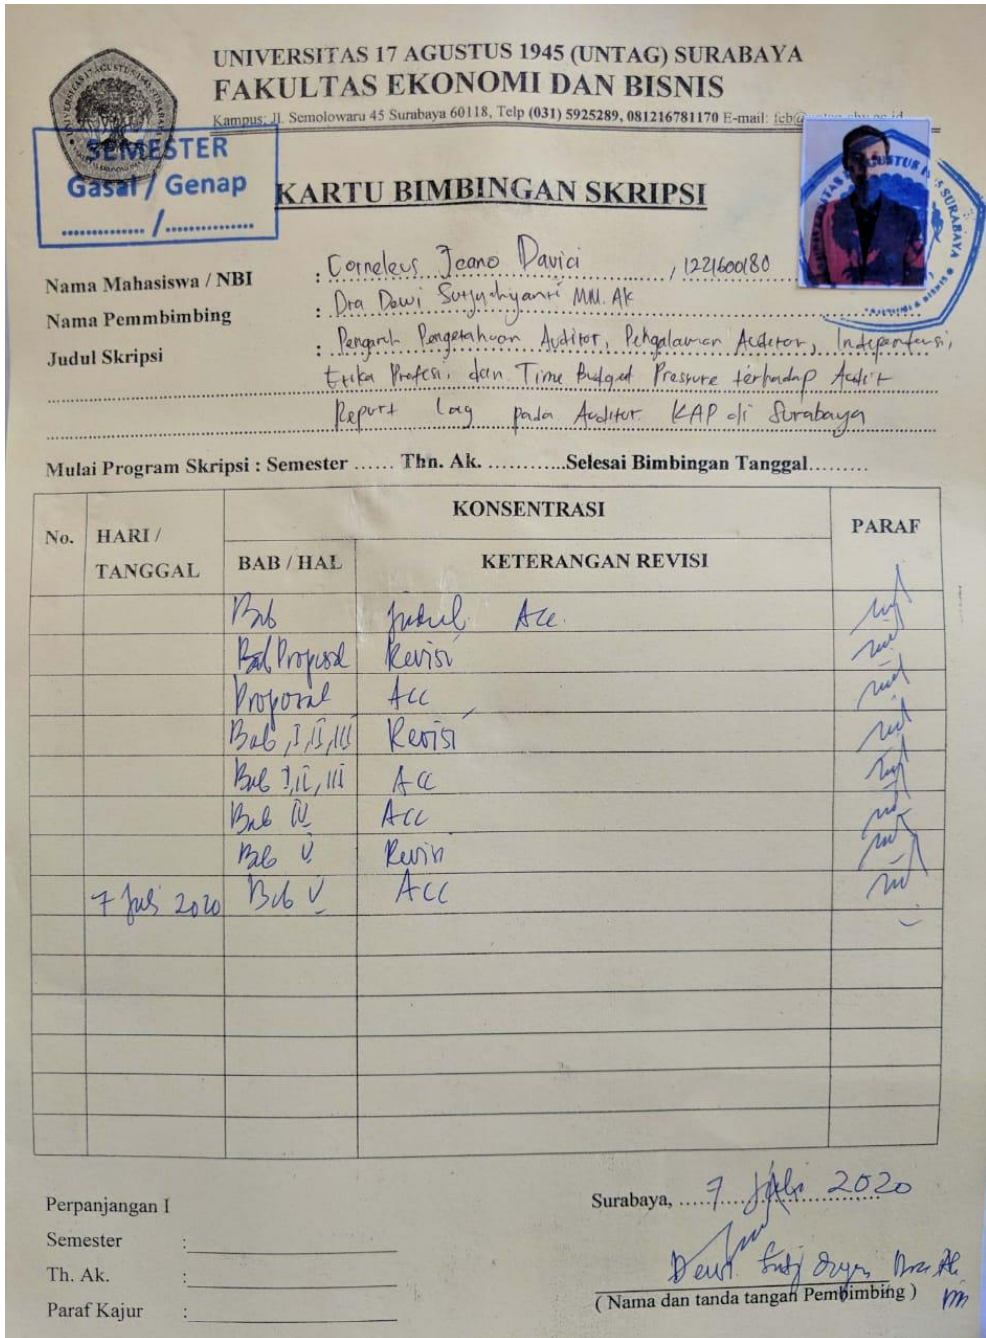 UNIVERSITAS 17 AGUSTUS 1945 (UNTAG) SURABAYA
FAKULTAS EKONOMI DAN BISNIS
Kampus: Jl. Semolowaru 45 Surabaya 60118, Telp (031) 5925289, 081216781170 E-mail:
SEMESTER
Gasal / Genap
............... / ...............
KARTU BIMBINGAN SKRIPSI
Nama Mahasiswa / NBI : Corneleus Jeano Davici, 1221600180
Nama Pemmbimbing : Dra Dewi MM. Ak
Judul Skripsi : Pengaruh Pengetahuan Auditor, Pengalaman Auditor, Independensi,
Etika Profesi, dan Time Budget Pressure terhadap Audit
Report Lag pada Auditor KAP di Surabaya
Mulai Program Skripsi : Semester ...... Thn. Ak. ............Selesai Bimbingan Tanggal.........
No. HARI / TANGGAL KONSENTRASI PARAF
BAB / HAL KETERANGAN REVISI
Bab Judul Acc.
Bab Proposal Revisi
Proposal Acc
Bab, I, II, III Revisi
Bab I, II, III Acc
Bab IV Acc
Bab V Revisi
7 Juli 2020 Bab V Acc
Perpanjangan I
Semester :
Th. Ak. :
Paraf Kajur :
Surabaya, 7 Juli 2020
Dewi
( Nama dan tanda tangan Pembimbing )